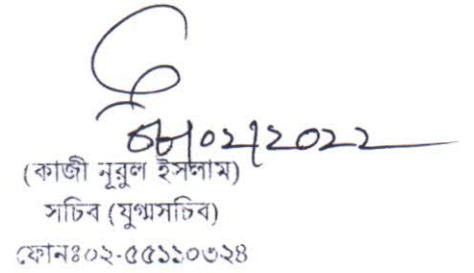 ০২|২০২২
(কাজী নূরুল ইসলাম)
সচিব (যুগ্মসচিব)
ফোনঃ০২-৫৫১১০৩২৪